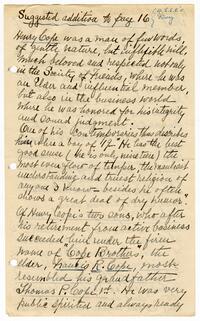 Suggested addition to page 16
Henry Cope was a man of few words
of gentle nature, but inflexible will,
much beloved and respected not only
in the Society of Friends, where he was
an Elder and influential member,
but also in the business world
where he was honored for his integrity
and sound judgment.
One of his contemporaries thus describes
him when a boy of 19. "He has the best
good sense (he is only nineteen) the
most even flow of temper, the clearest
understanding and truest religion of
anyone I know — besides he often
shows a great deal of dry humor."
Of Henry Cope's two sons, who after
his retirement from active business
succeeded him under the firm
name of Cope Brothers, the
elder, Francis R. Cope, most
resembled his grandfather
Thomas P. Cope 1st. He was very
public spirited and always ready